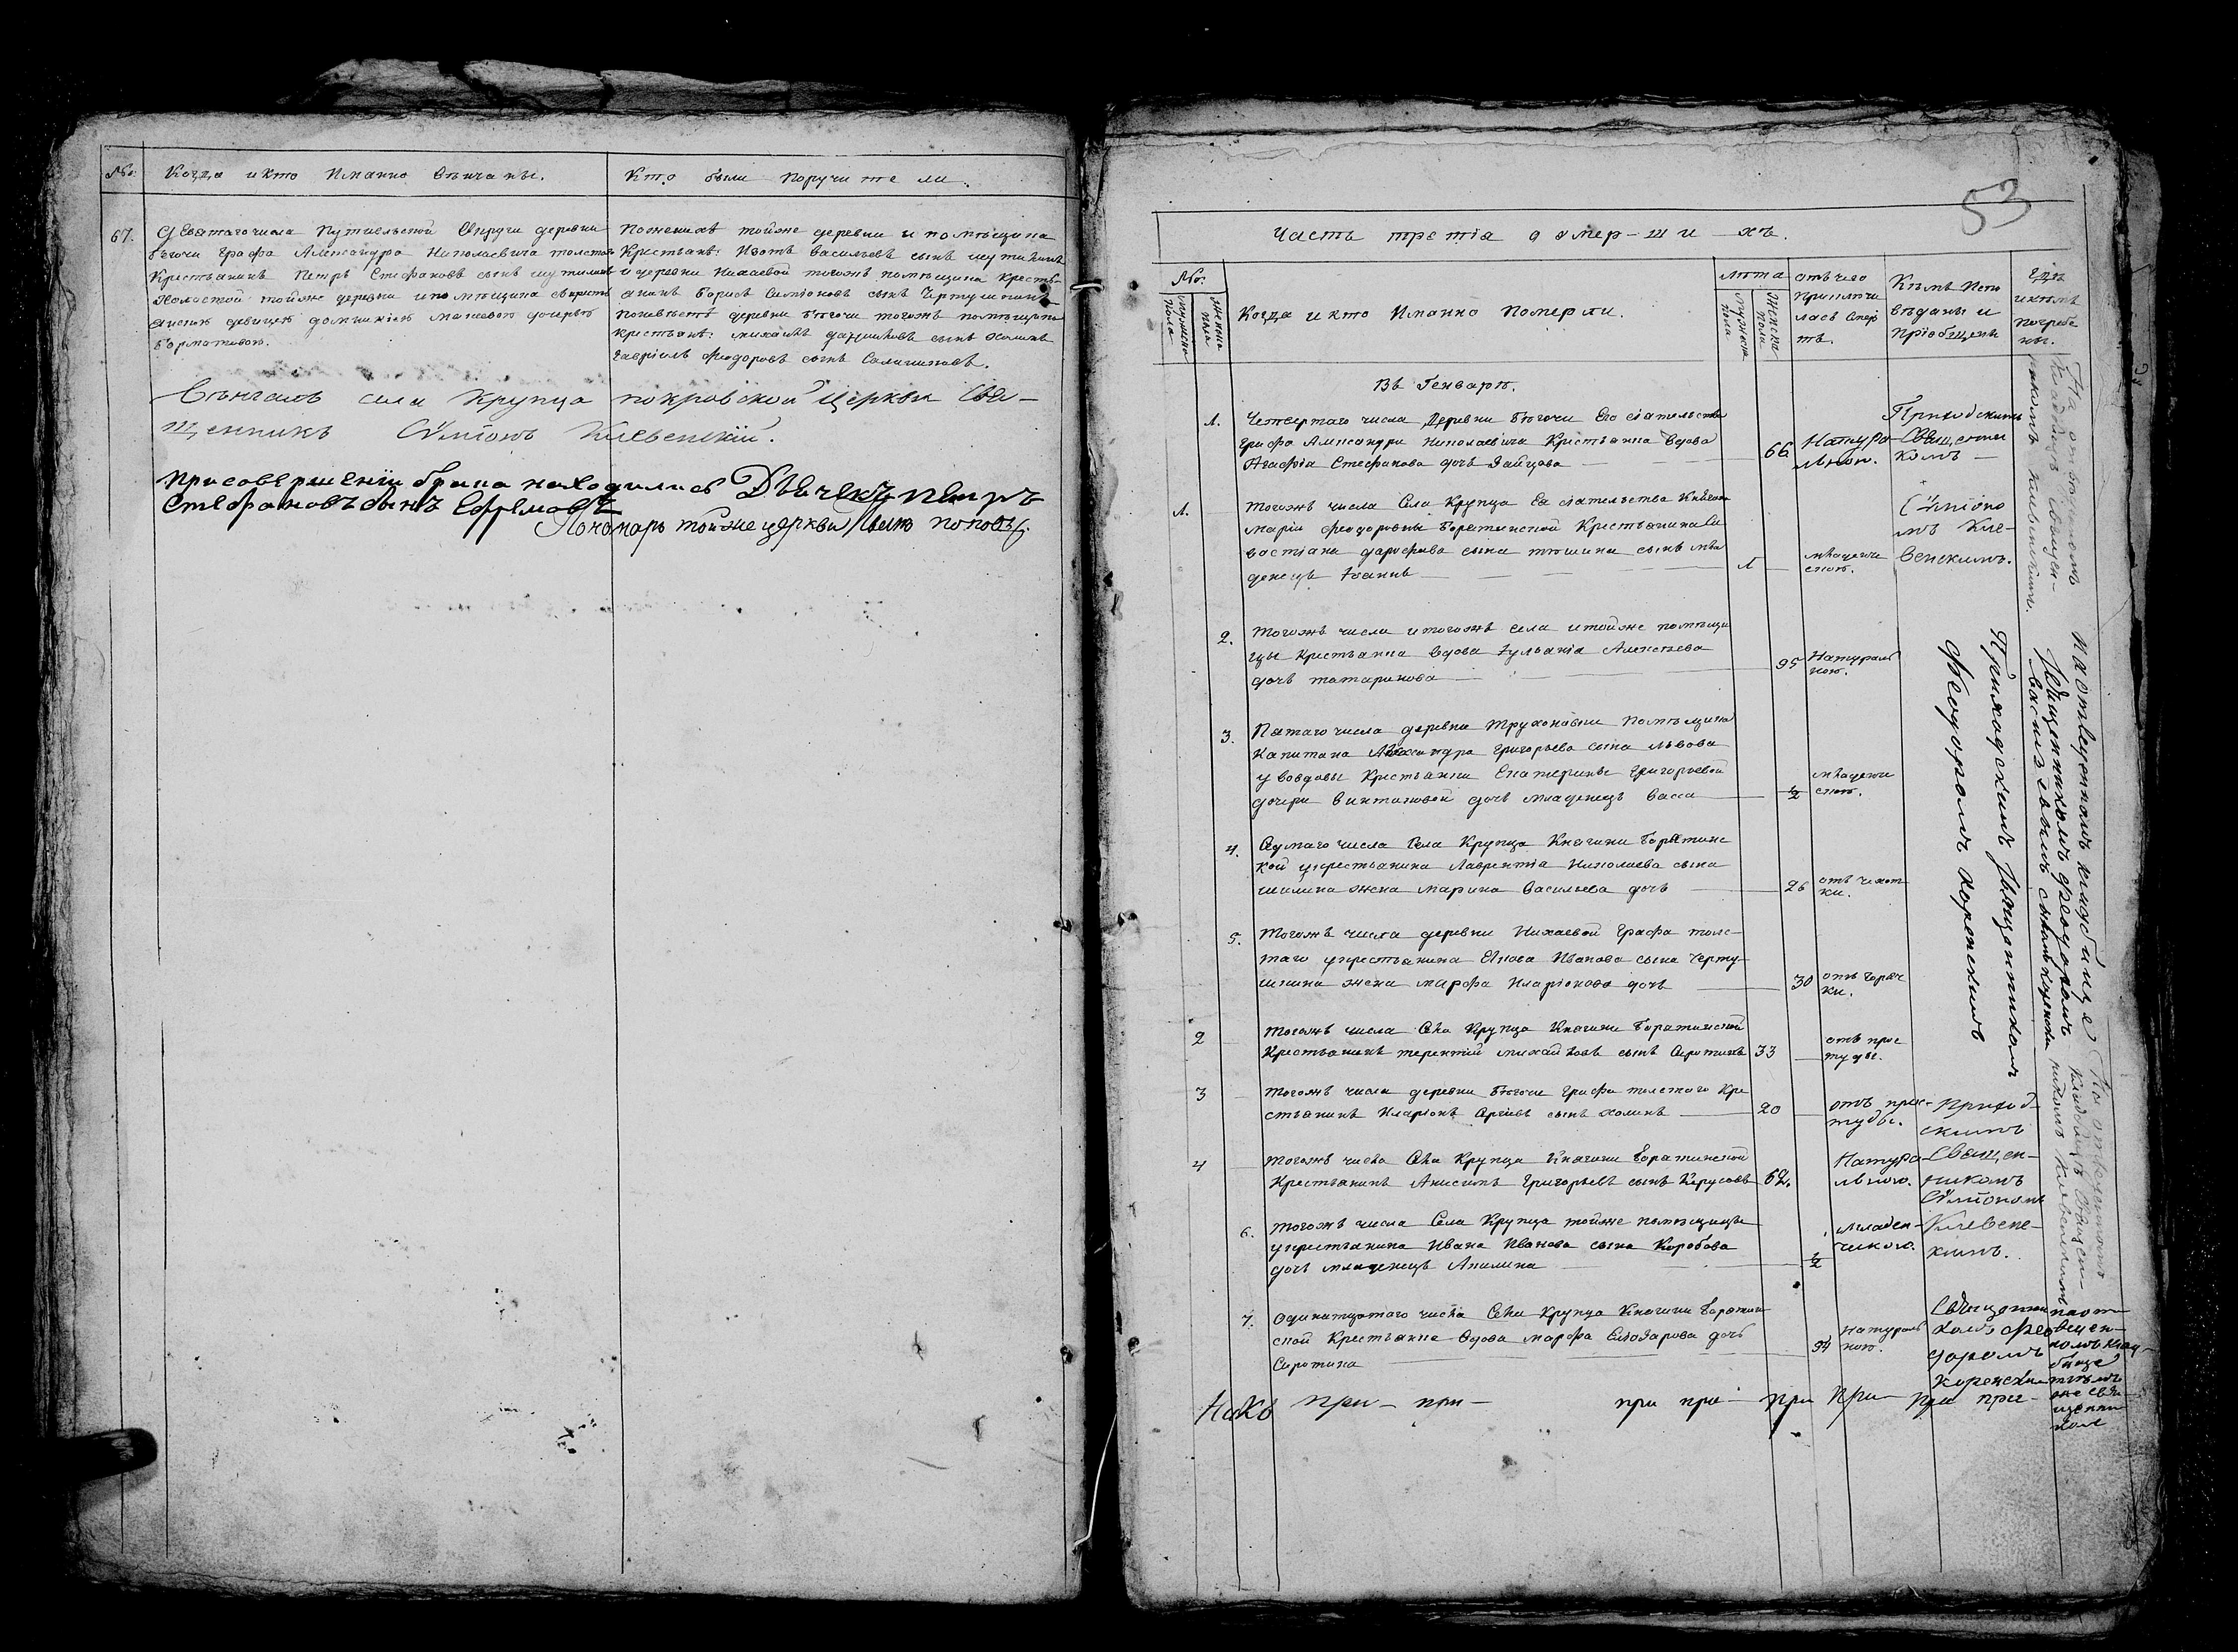 №:
Когда и кто Именно вѣнчаны.
Кто были Поручители.
67.
Девятаго числа Путивльской округи деревни
Бѣгочи Графа Александра Николаевича толстаго
Крестьянинъ Петръ Стефановъ сынъ
Холостой тойже деревни и помѣщика съ кресть
янскою девицею домникіею дочерью
поженихѣ тойже деревни и помѣщика
Крестьяне: Изотъ Васильевъ сынъ
и деревни Нихаевой тогожъ помѣщика кресть-
янинъ Борисъ Симіоновъ сынъ Чертушкинъ
поневѣстѣ деревни Бѣгочи тогожъ помѣщика
крестьяне: михаилъ сынъ Холинъ
Гавріилъ Феодоровъ сынъ
Вѣнчалъ села Крупца покровской церкви Свя-
щенникъ Сѵміонъ Клевенскій.
При совершеніи брака находились Дьячекъ Петръ
Стефановъ сынъ Ефремовъ
Пономарь тойже церкви поповъ
53
Часть третія о умер-ши-хъ.
№:
мужеска пола
женска пола
Когда и кто Именно Померли.
лѣта
мужеска пола
женска пола
отъ чего
приключи
лась Смер
ть.
Кѣмъ Испо
вѣданы и
Пріобщены
Гдѣ
и кѣмъ
Погребе
ны.
Въ Генварѣ.
1.
Четвертаго числа Деревни Бѣгочи Его сіятельства
Графа Александра Николаевича Крестьянка вдова
Агафіа Стефанова дочь Зайцова
66
Натура-
льною.
Приходскимъ
Священни
комъ
1.
Тогожъ числа Села Крупца Ея сіятельства Княгини
Маріи Феодоровны Борятинской Крестьянина Се
вастіана сына сынъ мла
денецъ Іоаннъ
1
младенче
скою.
Сѵміоно
мъ Кле-
венскимъ.
2.
Тогожъ числа и тогожъ села и тойже помѣщи
цы Крестьянка вдова Іульаніа Алексѣева
дочь татаринова
95
Натураль
ною.
3.
Пятаго числа деревни Трухоновки Помѣщика
Капитана Александра Григорьева сына Львова
у вовдовы Крестьянки Екатерины Григорьевой
дочери дочь младенецъ Васса
1/2
младенче
скою.
4.
Седмаго числа Села Крупца Княгини Борятинс
кой укрестьянина Лаврентіа Николаева сына
шилина жена Марина Васильева дочь
26
отъ чехот
ки.
5.
Тогожъ числа деревни Нихаевой Графа толс-
таго укрестьянина Якова Иванова сына Черту-
шкина жена марфа Иларіонова дочь
30
отъ Горяч
ки.
2
Тогожъ числа Села Крупца Княгини Борятинской
Крестьянинъ терентій михайловъ сынъ Сиротинъ
33
отъ прос
туды.
3
Тогожъ числа деревни Бѣгочи Графа толстаго Кре
стьянинъ Иларіонъ сынъ Холинъ
20
отъ прос-
туды.
Приход-
скимъ
4
Тогожъ числа Села Крупца Княгини Борятинской
Крестьянинъ Анисимъ Григорьевъ сынъ
62.
Натура-
льною.
Священ-
никомъ
Сѵміономъ
6.
Тогожъ числа Села Крупца тойже помѣщицы
укрестьянина Ивана Иванова сына Коробова
дочь младенецъ Акилина
1/2
младен-
ческою.
Клевенс-
кимъ.
7.
Одинатцатого числа Села Крупца Княгини Борятин
ской Крестьянка вдова марфа дочь
Сиротина
94
Натураль
ною.
Священни
комъ Фео
доромъ
Коренскимъ
на от-
веден-
номъ клад-
бище
тѣмъ
же свя
щенни
комъ
Приходскимъ Священникомъ
Феодоромъ Коренскимъ
На отведенномъ
кладбищѣ Священ-
никомъ Клевенскимъ.
На отведенномъ кладбище
Священникомъ Феодоромъ
На отведенномъ
кладбищѣ Священ-
никомъ Клевенскимъ
при- при- при при- при при- при при-